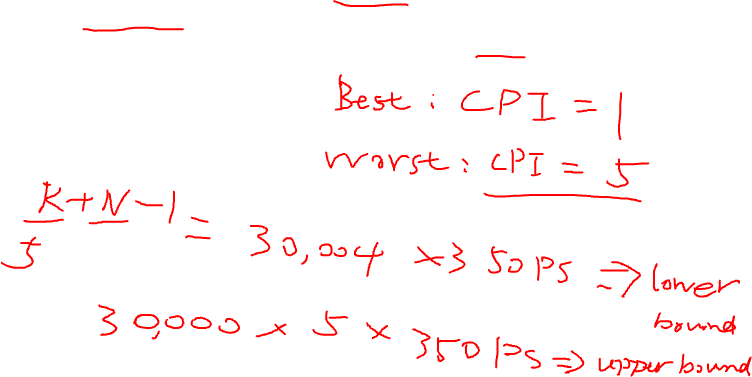 Best : CPI = 1
Worst : CPI = 5
K+N-1 = 30,004 × 350 PS ⇒ lower bound
5
30,000 × 5 × 350 PS ⇒ upper bound